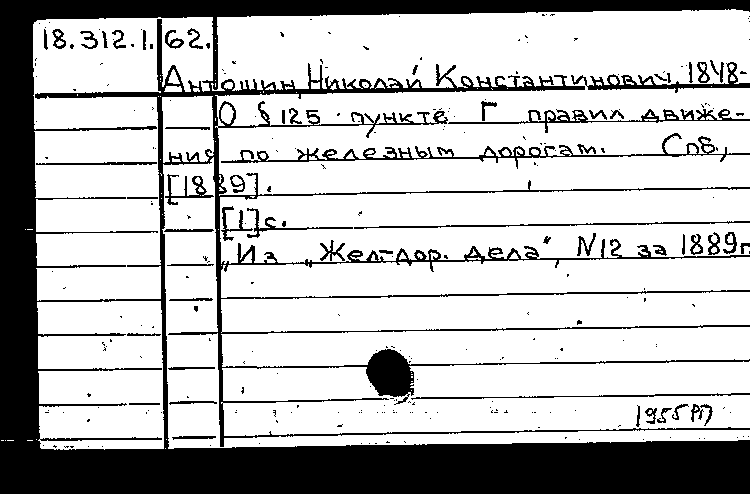 18.312.1.62.
Антошин, Николай Константинович, 1848-
О § 125 пункте Г правил движе-
ния по железным дорогам. Спб.,
[1889].
[1]с.
„Из „Жел-дор. дела“, N12 за 1889г